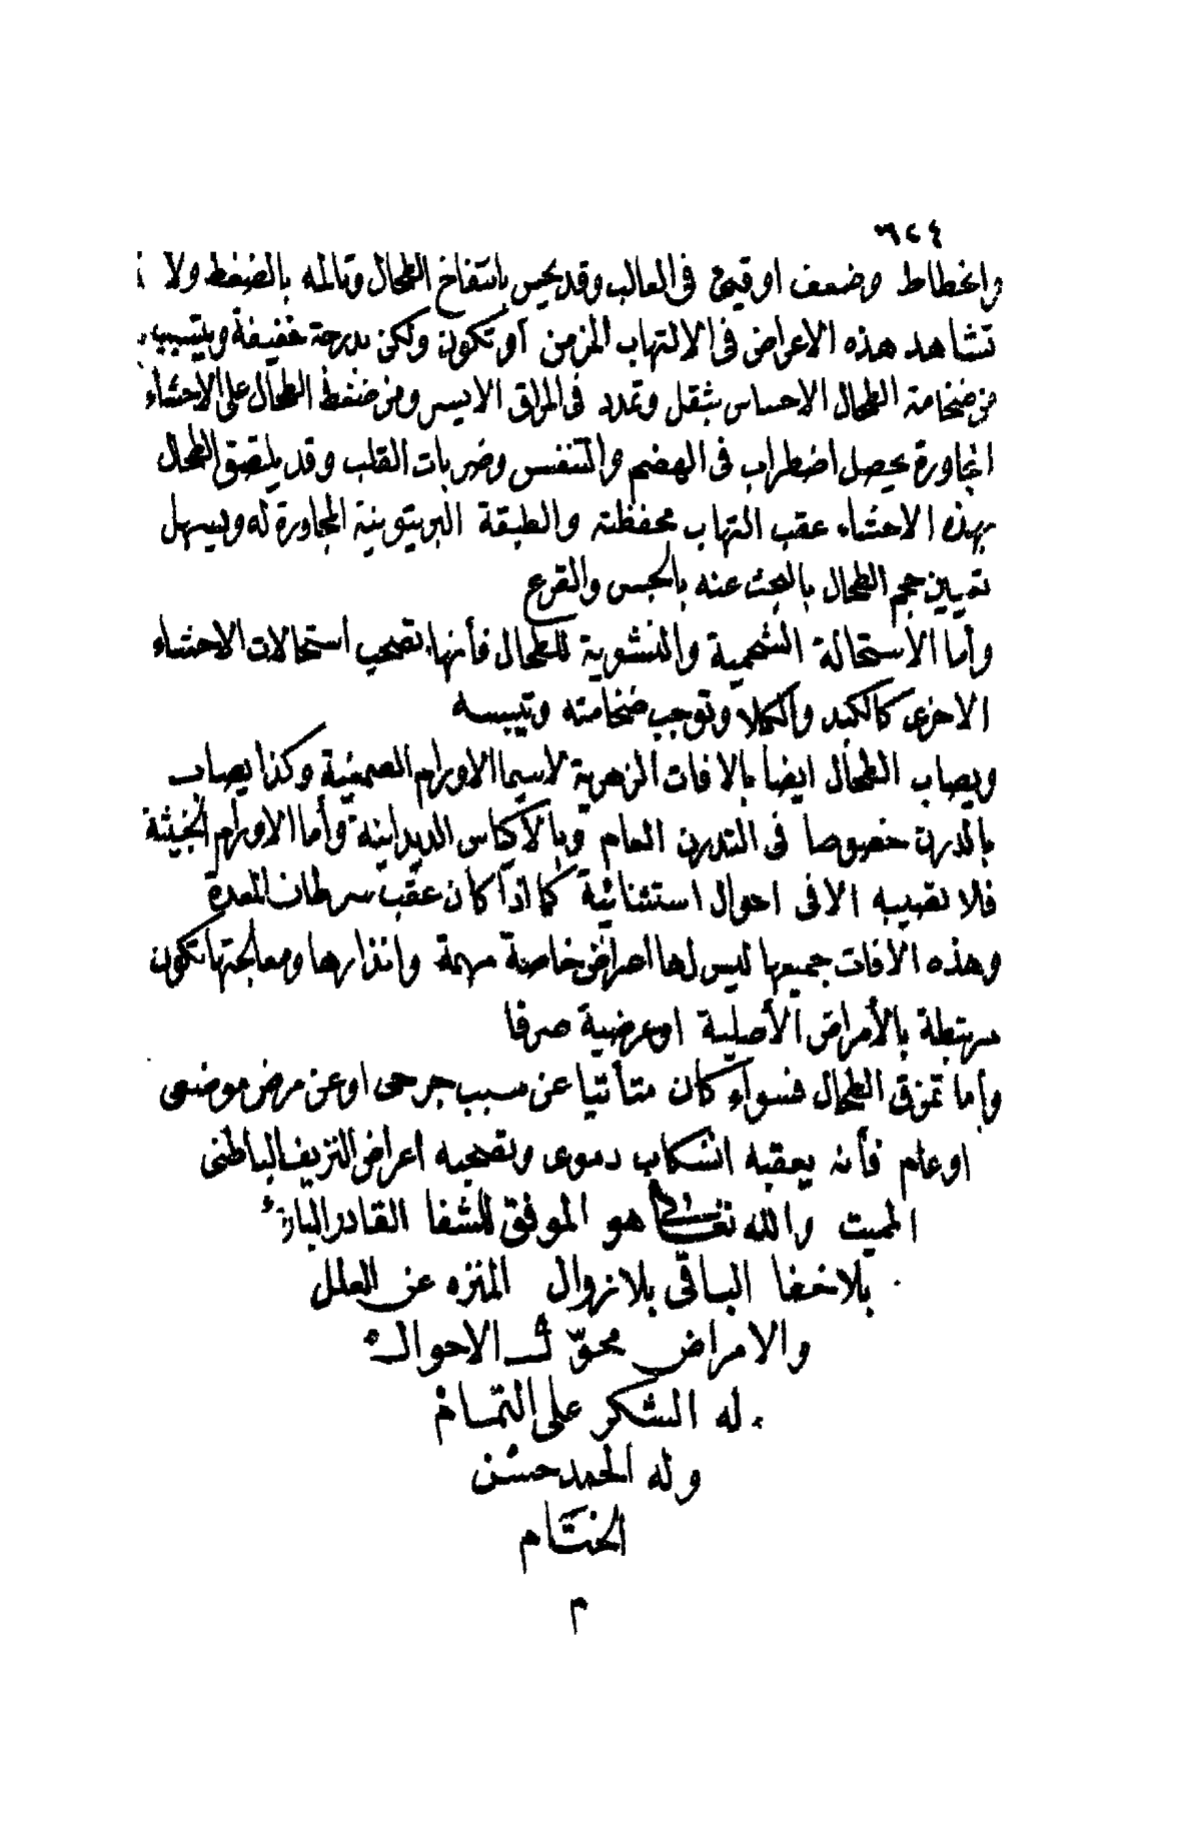 ٦٢٤
وانحطاط وضعف اوقيئ فى الغالب وقد يحس بانتفاخ الطحال وتالمه بالضغط ولا
تشاهد هذه الاعراض فى الالتهاب المزمن أو تكون ولكن بدرجة خفيفة ويتسبب
من ضخامة الطحال الاحساس بثقل وتمدد فى المراق الايسر ومن ضغط الطحال على الاحشاء
المجاورة يحصل اضطراب فى الهضم والتنفس وضربات القلب وقد يلتصق الطحال
بهذه الاحشاء عقب التهاب محفظته والطبقة البريتونية المجاورة له ويسهل
تعيين حجم الطحال بالبحث عنه بالجس والقرع
وأما الاستحالة الشحمية والنشوية للطحال فأنها تصحب استحالات الاحشاء
الاخرى كالكبد والكلا وتوجب ضخامته وتيبسه
ويصاب الطحال ايضا بالافات الزهرية لاسيما الاورام الصمغية وكذا يصاب
بالدرن خصوصا فى التدرن العام وبالاكياس الديدانية وأما الاورام الخبيثة
فلا تصيبه الا فى احوال استثنائية كما اذا كان عقب سرطان المعدة
وهذه الافات جميعها ليس لها اعراض خاصة مهمة وانذارها ومعالجتها تكون
مرتبطة بالأمراض الأصلية اوعرضية صرفا
وأما تمزق الطحال فسواء كان متأتيا عن سبب جرحى اوعن مرض موضعى
اوعام فأنه يعقبه انسكاب دموى وتصحبه اعراض النزيف الباطنى
المميت والله تعالى هو الموفق للشفا القادر البارئ
بلاخفا الباقى بلازوال المنزه عن العلل
والامراض محوّل الاحوال
له الشكر على التمام
وله الحمد حسن
الختام
م